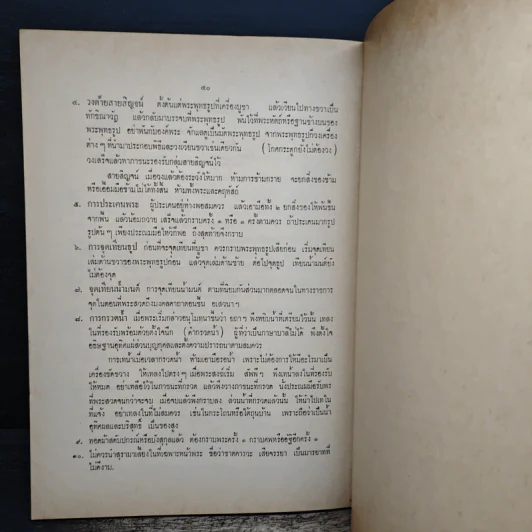 ๔๐
๔. วงด้ายสายสิญจน์ ตั้งต้นแต่พระพุทธรูปที่เครื่องบูชา แล้วเวียนไปทางขวาเป็น
ทักษิณาวัฏ แล้วกลับมาบรรจบที่พระพุทธรูป พันไว้ที่พระหัตถ์หรือฐานข้างบนของ
พระพุทธรูป อย่าพันกับองค์พระ จักแลดูเป็นมัดพระพุทธรูป จากพระพุทธรูปก็วงเครื่อง
ต่าง ๆ ที่นำมาประกอบพิธีและวงเวียนขวาเช่นเดียวกัน (โกศกระดูกยังไม่ต้องวง)
วงเสร็จแล้วหาภาชนะรองรับกลุ่มสายสิญจน์ไว้
สายสิญจน์ เมื่อวงแล้วต้องระวังให้มาก ห้ามการข้ามกราย จะยกสิ่งของข้าม
หรือเอื้อมมือข้ามไม่ได้ทั้งสิ้น ห้ามทั้งพระและคฤหัสถ์
๕. การประเคนพระ ผู้ประเคนอยู่ห่างพอสมควร แล้วเอามือทั้ง ๒ ยกสิ่งของให้พ้นขึ้น
จากพื้น แล้วน้อมถวาย เสร็จแล้วกราบครั้ง ๑ หรือ ๓ ครั้งตามควร ถ้าประเคนมากรูป
รูปต้น ๆ เพียงประณมมือไหว้ก็พอ ถึงสุดท้ายจึงกราบ
๖. การจุดเทียนธูป ก่อนที่จะจุดเทียนที่บูชา ควรกราบพระพุทธรูปเสียก่อน เริ่มจุดเทียน
เล่มด้านขวาของพระพุทธรูปก่อน แล้วจุดเล่มด้านซ้าย ต่อไปจุดธูป เทียนน้ำมนต์ยัง
ไม่ต้องจุด
๗. จุดเทียนน้ำมนต์ การจุดเทียนน้ำมนต์ ตามที่นิยมกันส่วนมากตลอดจนในทางราชการ
จุดในตอนที่พระสวดถึงมงคลคาถาตอนขึ้น อเสวนาฯ
๘. การกรวดน้ำ เมื่อพระเริ่มกล่าวอนุโมทนาขึ้นว่า ยถาฯ พึงหยิบน้ำที่เตรียมไว้นั้น เทลง
ในที่รองรับพร้อมด้วยตั้งใจนึก (คำกรวดน้ำ) ผู้ที่ว่าเป็นภาษาบาลีไม่ได้ พึงตั้งใจ
อธิษฐานอุทิศแผ่ส่วนบุญกุศลและตั้งความปรารถนาตามสมควร
การเทน้ำเมื่อเวลากรวดน้ำ ห้ามเอามือรอน้ำ เพราะไม่ต้องการให้มีอะไรมาเป็น
เครื่องขัดขวาง ให้เทลงไปตรง ๆ เมื่อพระสงฆ์เริ่ม สัพพีฯ พึงเทน้ำลงในที่รองรับ
ให้หมด อย่าเหลือไว้ในภาชนะที่กรวด แล้วพึงวางภาชนะที่กรวด นั่งประณมมือรับพร
ที่พระสวดจนกว่าจะจบ เมื่อจบแล้วพึงกราบลง ส่วนน้ำที่กรวดแล้วนั้น ให้นำไปเทใน
ที่แจ้ง อย่าเทลงในที่ไม่สมควร เช่นในกระโถนหรือใต้ถุนบ้าน เพราะถือว่าเป็นน้ำ
อุทิศผลและบริสุทธิ์ เป็นของสูง
๙. ทอดผ้าสดับปกรณ์หรือบังสุกุลแล้ว ต้องกราบพระครั้ง ๑ กราบศพหรืออัฐิอีกครั้ง ๑
๑๐. ไม่ควรนำสุรามาเลี้ยงในที่เฉพาะหน้าพระ ชื่อว่าขาดคารวะ เสียจรรยา เป็นมารยาทที่
ไม่ดีงาม